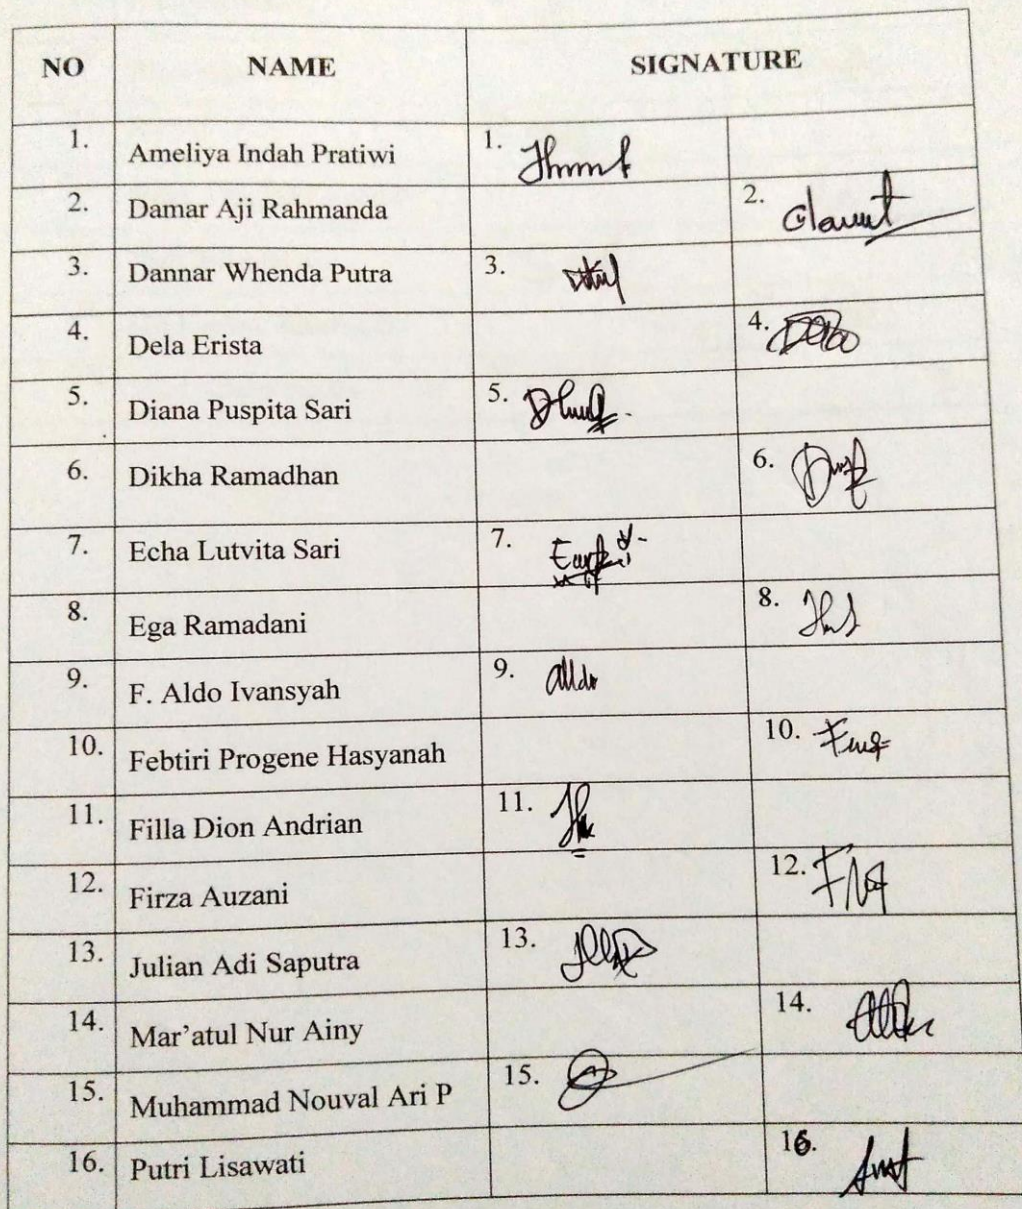 NO NAME SIGNATURE
1. Ameliya Indah Pratiwi 1.
2. Damar Aji Rahmanda 2.
3. Dannar Whenda Putra 3.
4. Dela Erista 4.
5. Diana Puspita Sari 5.
6. Dikha Ramadhan 6.
7. Echa Lutvita Sari 7.
8. Ega Ramadani 8.
9. F. Aldo Ivansyah 9. aldo
10. Febtiri Progene Hasyanah 10.
11. Filla Dion Andrian 11.
12. Firza Auzani 12.
13. Julian Adi Saputra 13.
14. Mar’atul Nur Ainy 14.
15. Muhammad Nouval Ari P 15.
16. Putri Lisawati 16.